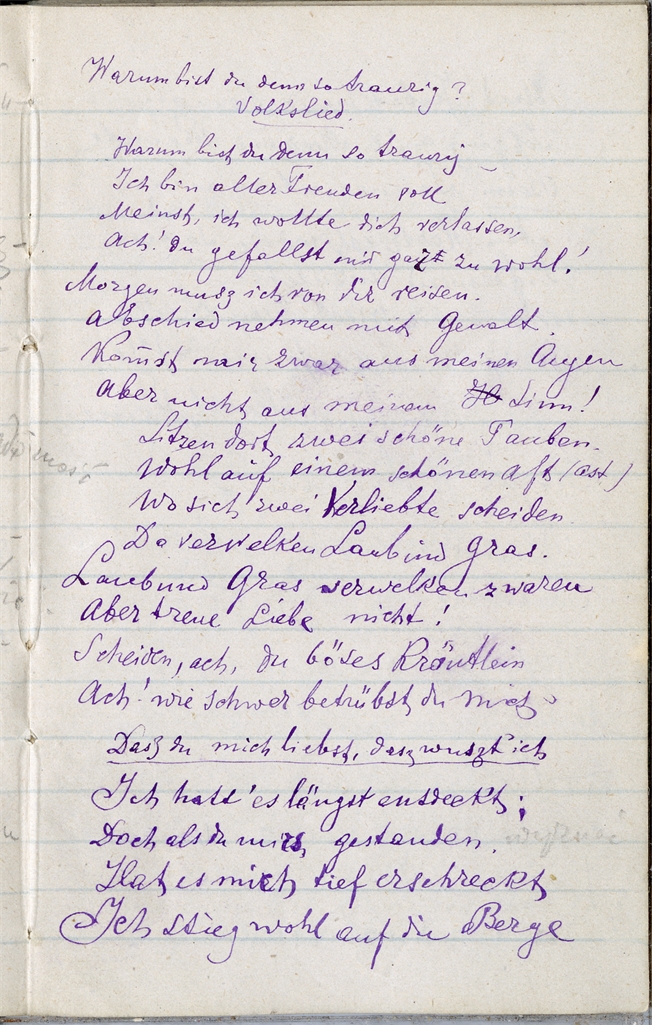 Warum bist du denn so traurig?
Volkslied.
Warum bist du denn so traurig
Ich bin aller Freuden voll
Meinst, ich wollte dich verlassen,
Ach! du gefallst mir gar zu wohl!
Morgen musz ich von dir reisen.
Abschied nehmen mit Gewalt.
Kom̄st mir zwar aus meinen Augen
Aber nicht aus meinem Sinn!
Sitzen dort zwei schöne Tauben.
Wohl auf einem schönen Aft (ast)
Wo sich zwei Verliebte scheiden
Da verwelken Laub und Gras.
Laub und Gras verwelken zwaren
Aber treue Liebe nicht!
Scheiden, ach, du böses Kräutlein
Ach! wie schwer betrübst du mich
Dasz du mich liebst, dasz wuszt ich
Ich hatt' es längst entdeckt;
Doch als du mirs gestanden.
Hat es mich tief erschreckt
Ich stieg wohl auf die Berge